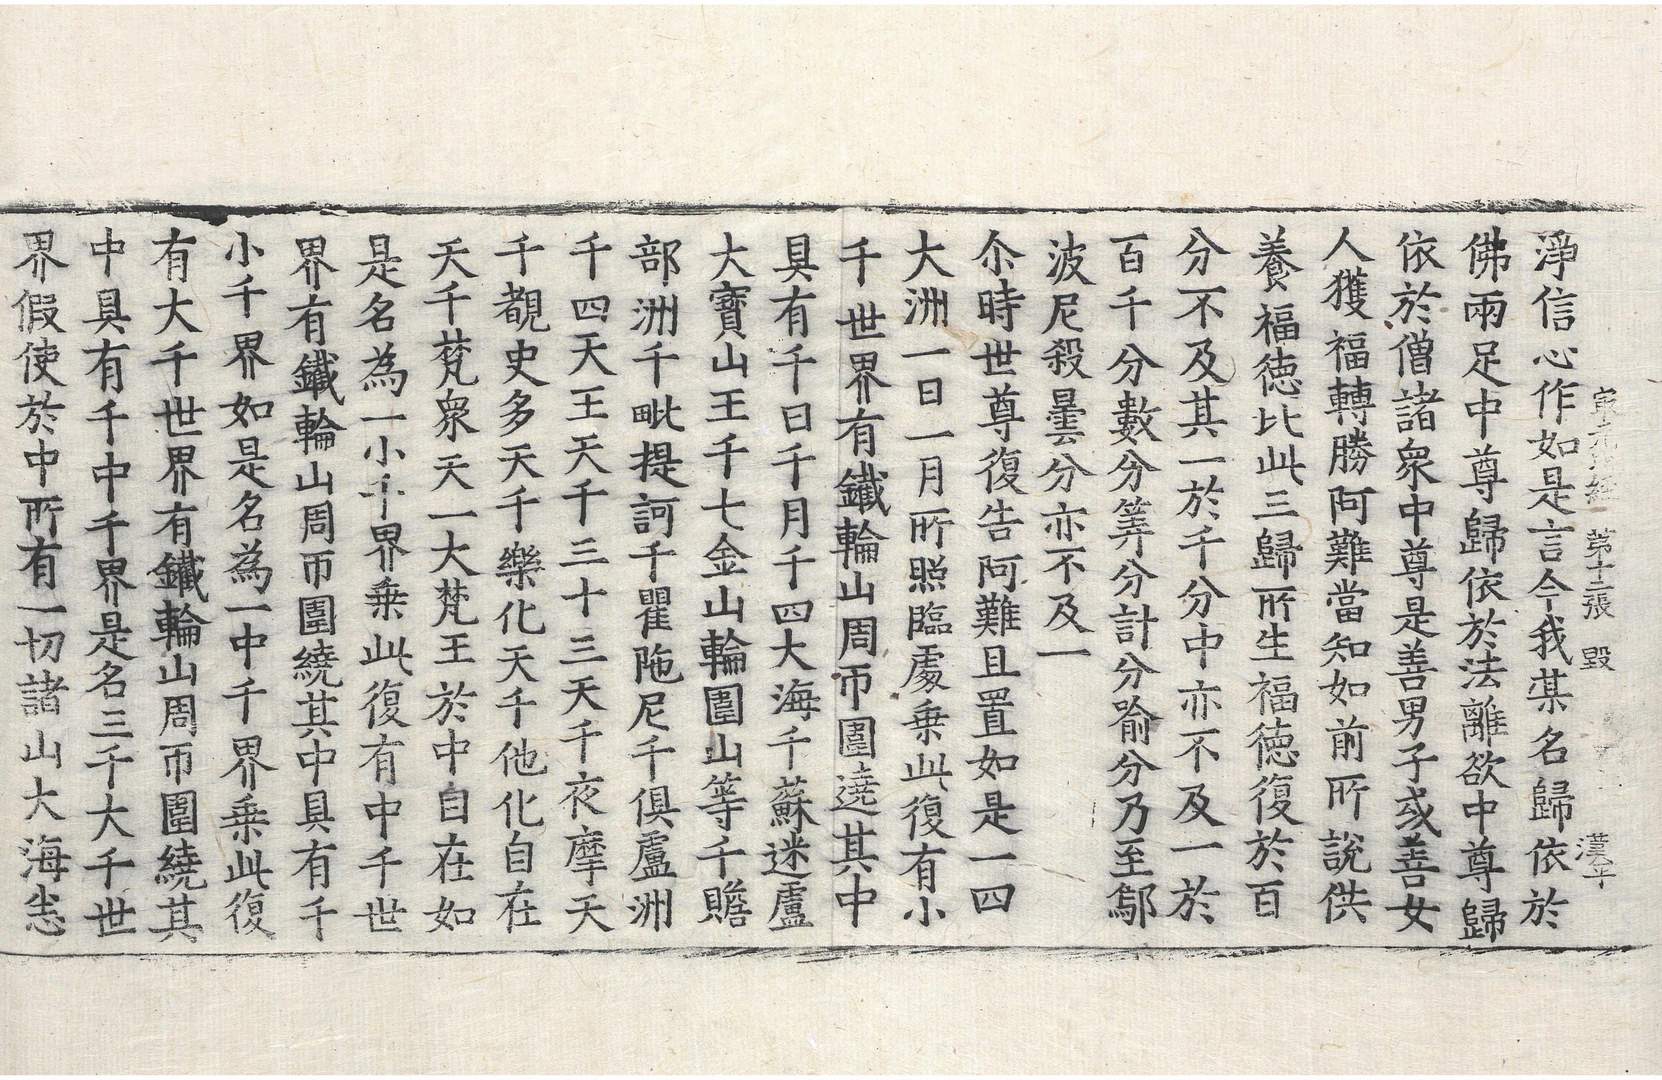 最无比經 第十二張 毀 漢平
淨信心作如是言今我某名歸依於
佛兩足中尊歸依於法離欲中尊歸
依於僧諸衆中尊是善男子或善女
人獲福轉勝阿難當知如前所說供
養福德比此三歸所生福德復於百
分不及其一於千分中亦不及一於
百千分數分筭分計分喻分乃至鄔
波尼殺曇分亦不及一
尒時世尊復告阿難且置如是一四
大洲一日一月所照臨處乗此復有小
千世界有鐵輪山周帀圍遶其中
具有千日千月千四大海千蘇迷盧
大寶山王千七金山輪圍山等千贍
部洲千毗提訶千瞿陁尼千俱盧洲
千四天王天千三十三天千夜摩天
千覩史多天千樂化天千他化自在
天千梵衆天一大梵王於中自在如
是名為一小千界乗此復有中千世
界有鐵輪山周帀圍繞其中具有千
小千界如是名為一中千界乗此復
有大千世界有鐵輪山周帀圍繞其
中具有千中千界是名三千大千世
界假使於中所有一切諸山大海悉